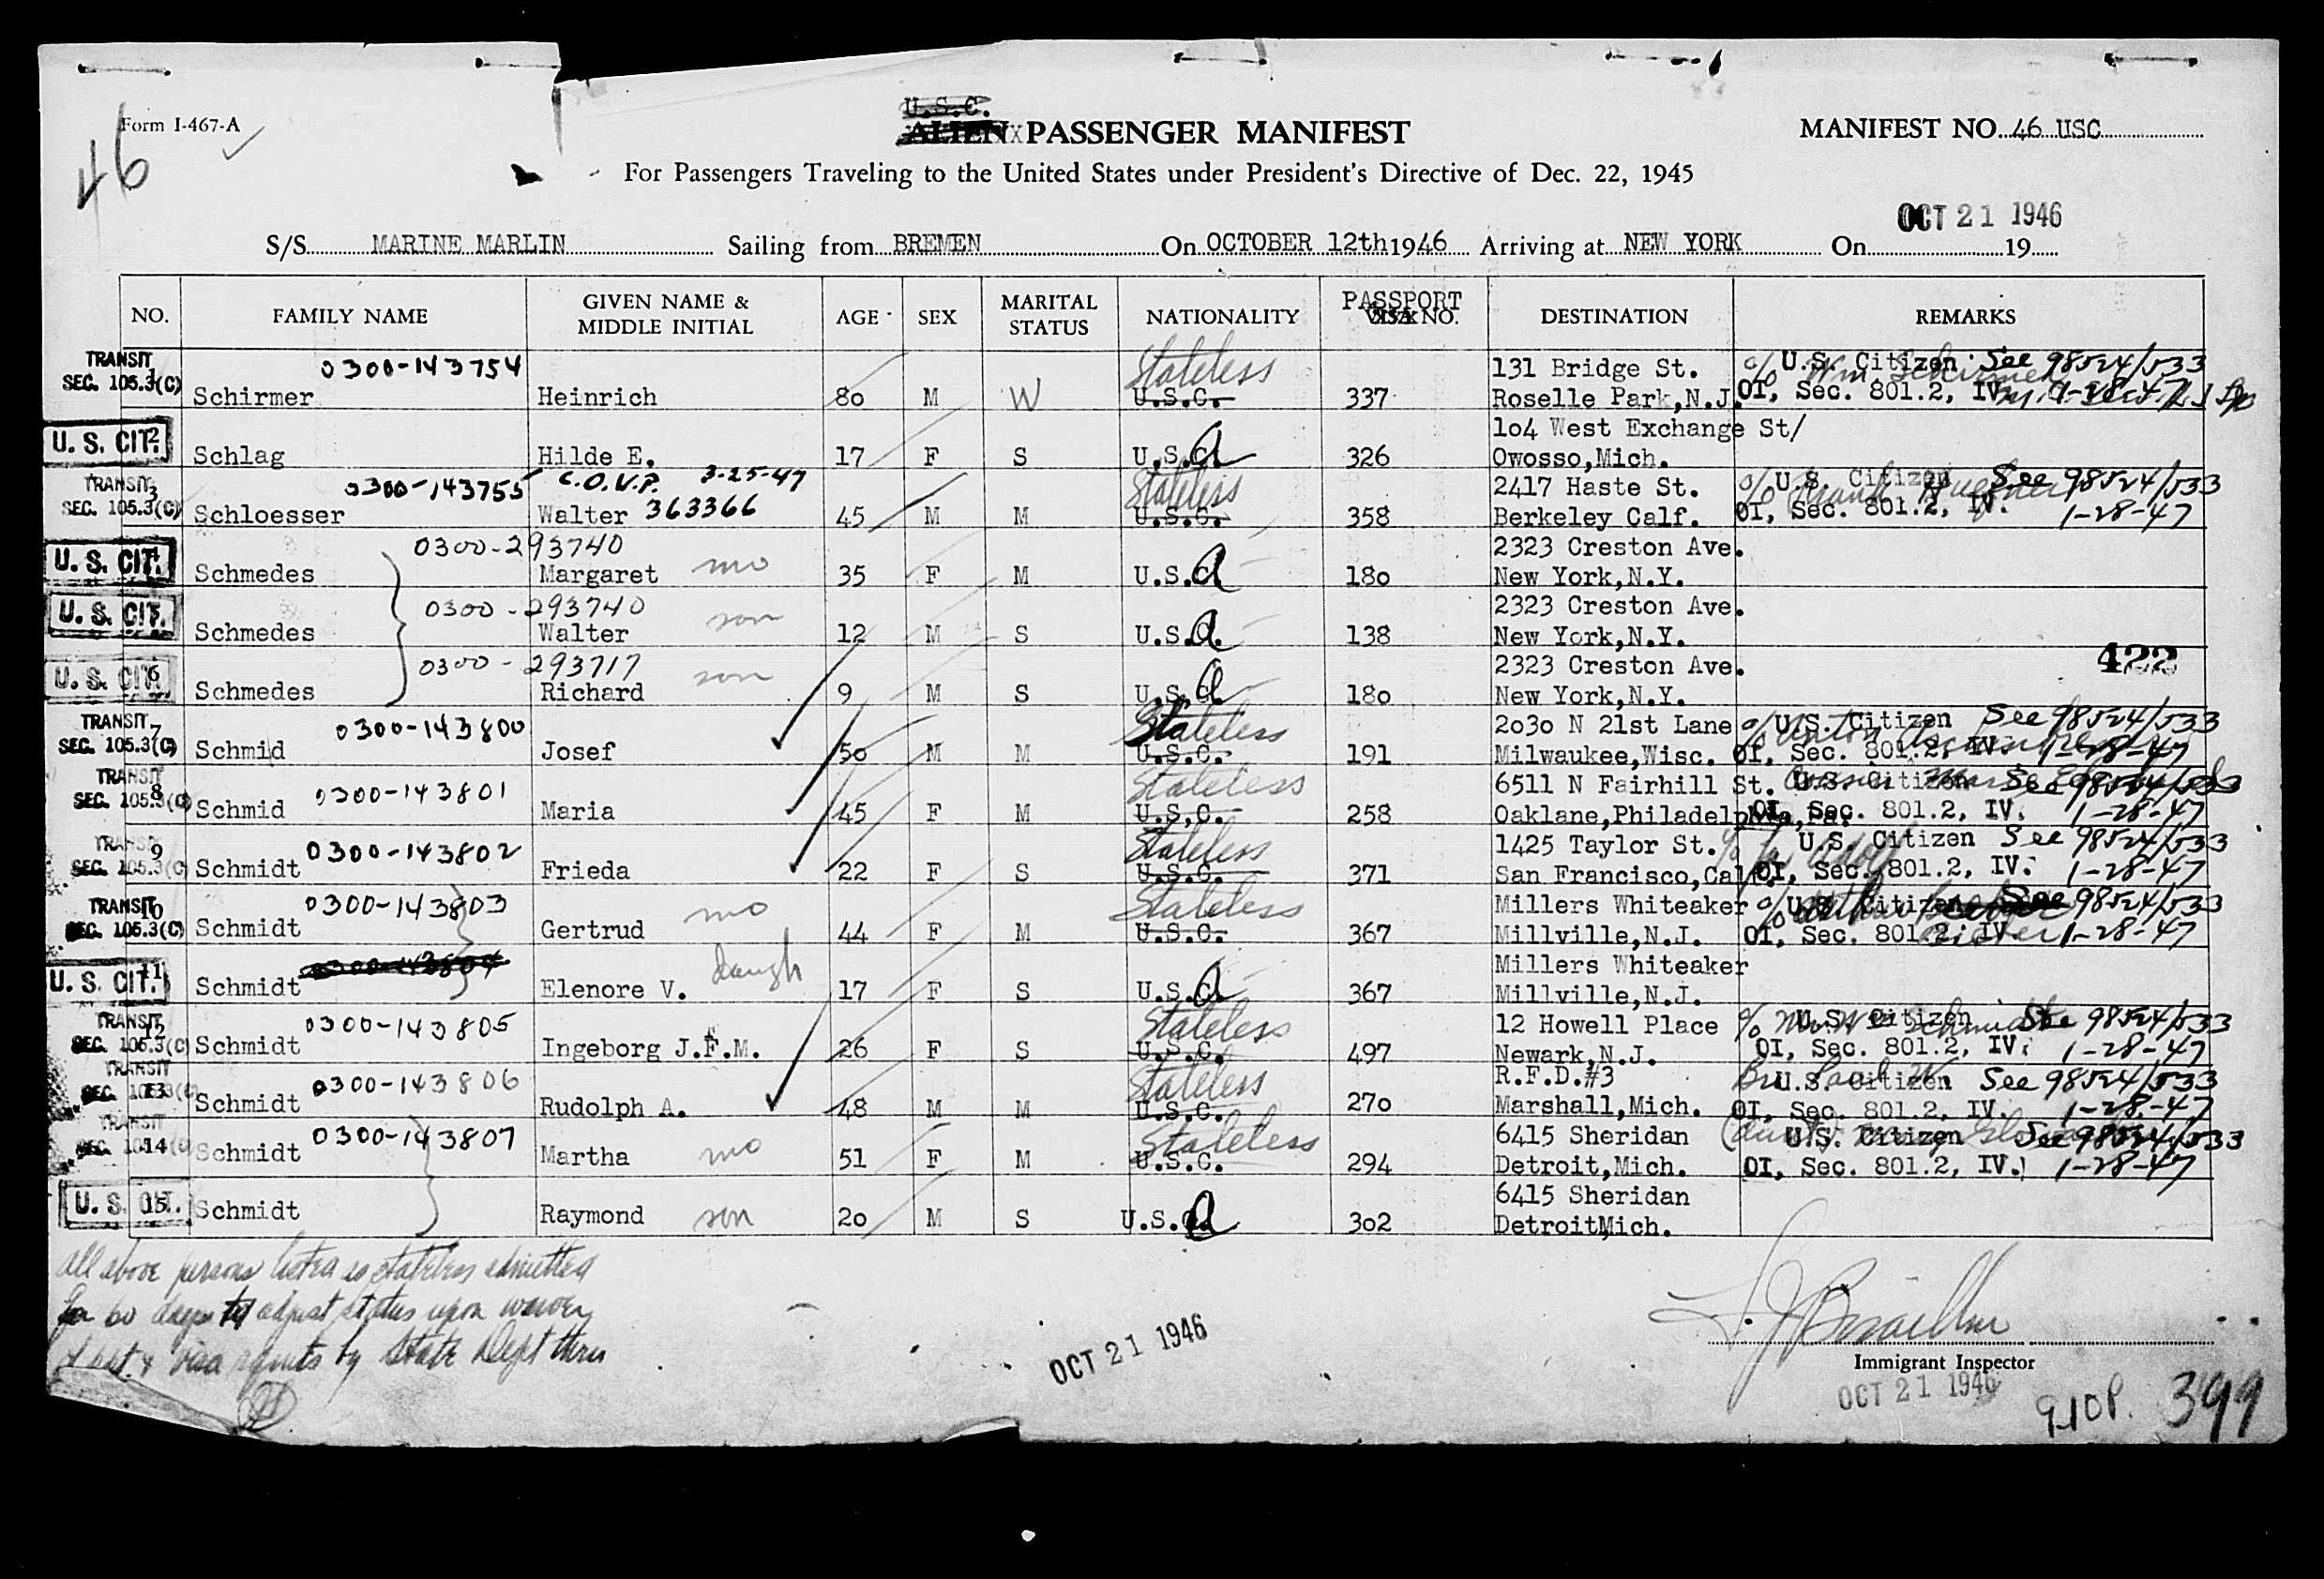 Form I-467-A
46
U.S.C.
ALIEN PASSENGER MANIFEST
MANIFEST NO. 46 USC
For Passengers Traveling to the United States under President's Directive of Dec. 22, 1945
OCT 21 1946
S/S MARINE MARLIN Sailing from BREMEN On OCTOBER 12th 1946 Arriving at NEW YORK On 19
NO. FAMILY NAME GIVEN NAME & MIDDLE INITIAL AGE SEX MARITAL STATUS NATIONALITY PASSPORT NO. DESTINATION REMARKS
TRANSIT 0300-143754 Stateless 131 Bridge St. c/o Wm. U.S. Citizen See 98524/533
SEC. 105.3(C) 1 Schirmer Heinrich 80 M W U.S.C. 337 Roselle Park,N.J. OI, Sec. 801.2, IV. 1-28-47
104 West Exchange St/
U. S. CIT. 2 Schlag Hilde E. 17 F S U.S.C. 326 Owosso,Mich.
TRANSIT 0300-143755 C.O.V.P. 3-25-47 Stateless 2417 Haste St. c/o U.S. Citizen See 98524/533
SEC. 105.3(C) 3 Schloesser Walter 363366 45 M M U.S.C. 358 Berkeley Calf. OI, Sec. 801.2, IV. 1-28-47
0300-293740 2323 Creston Ave.
U. S. CIT. 4 Schmedes Margaret mo 35 F M U.S.C. 180 New York,N.Y.
0300-293740 2323 Creston Ave.
U. S. CIT. 5 Schmedes Walter son 12 M S U.S.C. 138 New York,N.Y.
0300-293717 2323 Creston Ave. 422
U. S. CIT. 6 Schmedes Richard son 9 M S U.S.C. 180 New York,N.Y.
TRANSIT 0300-143800 Stateless 2030 N 21st Lane c/o Anton U.S. Citizen See 98524/533
SEC. 105.3(C) 7 Schmid Josef 50 M M U.S.C. 191 Milwaukee,Wisc. OI, Sec. 801.2, IV. 1-28-47
TRANSIT 0300-143801 Stateless 6511 N Fairhill St. U.S. Citizen See 98524/533
SEC. 105.3(C) 8 Schmid Maria 45 F M U.S.C. 258 Oaklane,Philadelphia,Pa. OI, Sec. 801.2, IV. 1-28-47
TRANSIT 0300-143802 Stateless 1425 Taylor St. U.S. Citizen See 98524/533
SEC. 105.3(C) 9 Schmidt Frieda 22 F S U.S.C. 371 San Francisco,Calf. OI, Sec. 801.2, IV. 1-28-47
TRANSIT 0300-143803 Stateless Millers Whiteaker c/o U.S. Citizen See 98524/533
SEC. 105.3(C) 10 Schmidt Gertrud mo 44 F M U.S.C. 367 Millville,N.J. OI, Sec. 801.2, IV. 1-28-47
0300-143804 Millers Whiteaker
U. S. CIT. 11 Schmidt Elenore V. daugh 17 F S U.S.C. 367 Millville,N.J.
TRANSIT 0300-143805 Stateless 12 Howell Place c/o U.S. Citizen See 98524/533
SEC. 105.3(C) 12 Schmidt Ingeborg J.F.M. 26 F S U.S.C. 497 Newark,N.J. OI, Sec. 801.2, IV. 1-28-47
TRANSIT 0300-143806 Stateless R.F.D.#3 Bro U.S. Citizen See 98524/533
SEC. 105.3(C) 13 Schmidt Rudolph A. 48 M M U.S.C. 270 Marshall,Mich. OI, Sec. 801.2, IV. 1-28-47
TRANSIT 0300-143807 Stateless 6415 Sheridan (aunt U.S. Citizen See 98524/533
SEC. 105.3(C) 14 Schmidt Martha mo 51 F M U.S.C. 294 Detroit,Mich. OI, Sec. 801.2, IV. 1-28-47
6415 Sheridan
U. S. CIT. 15 Schmidt Raymond son 20 M S U.S.C. 302 Detroit,Mich.
All above persons listed as stateless admitted
for 60 days to adjust status upon waiver
of & visa by State Dept
OCT 21 1946
Immigrant Inspector
OCT 21 1946
910P. 399